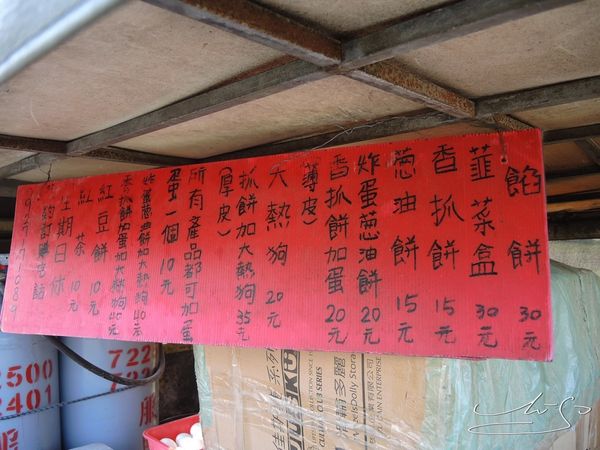 餡餅 30元
韮菜盒 30元
香抓餅 15元
蔥油餅 15元
炸蛋蔥油餅 20元
香抓餅加蛋 20元
(薄皮)
大熱狗 20元
抓餅加大熱狗 35元
(厚皮)
所有產品都可加蛋
蛋一個 10元
炸蛋蔥油餅加大熱狗 40元
香抓餅加蛋加大熱狗 40元
紅豆餅 10元
紅茶 10元
星期日休
2500
2401
722
服